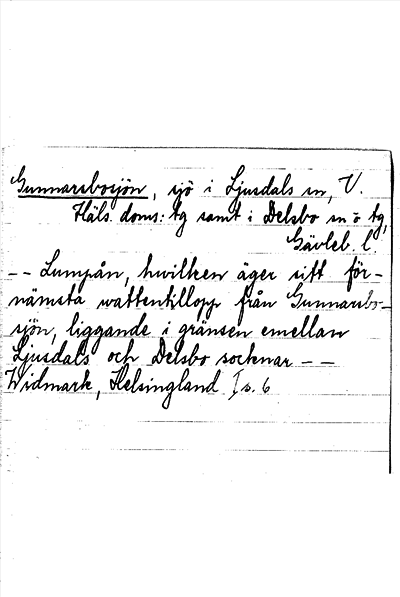 Gunnarsbosjön, sjö i Ljusdals sn, V.
Häls. doms: tg samt i Delsbo sn o tg,
Gävleb. l.
-- Lumpån, hwilken äger sitt för-
nämsta wattentillopp från Gunnarsbo-
sjön, liggande i gränsen emellan
Ljusdals och Delsbo socknar --
Widmark, Helsingland I s. 6